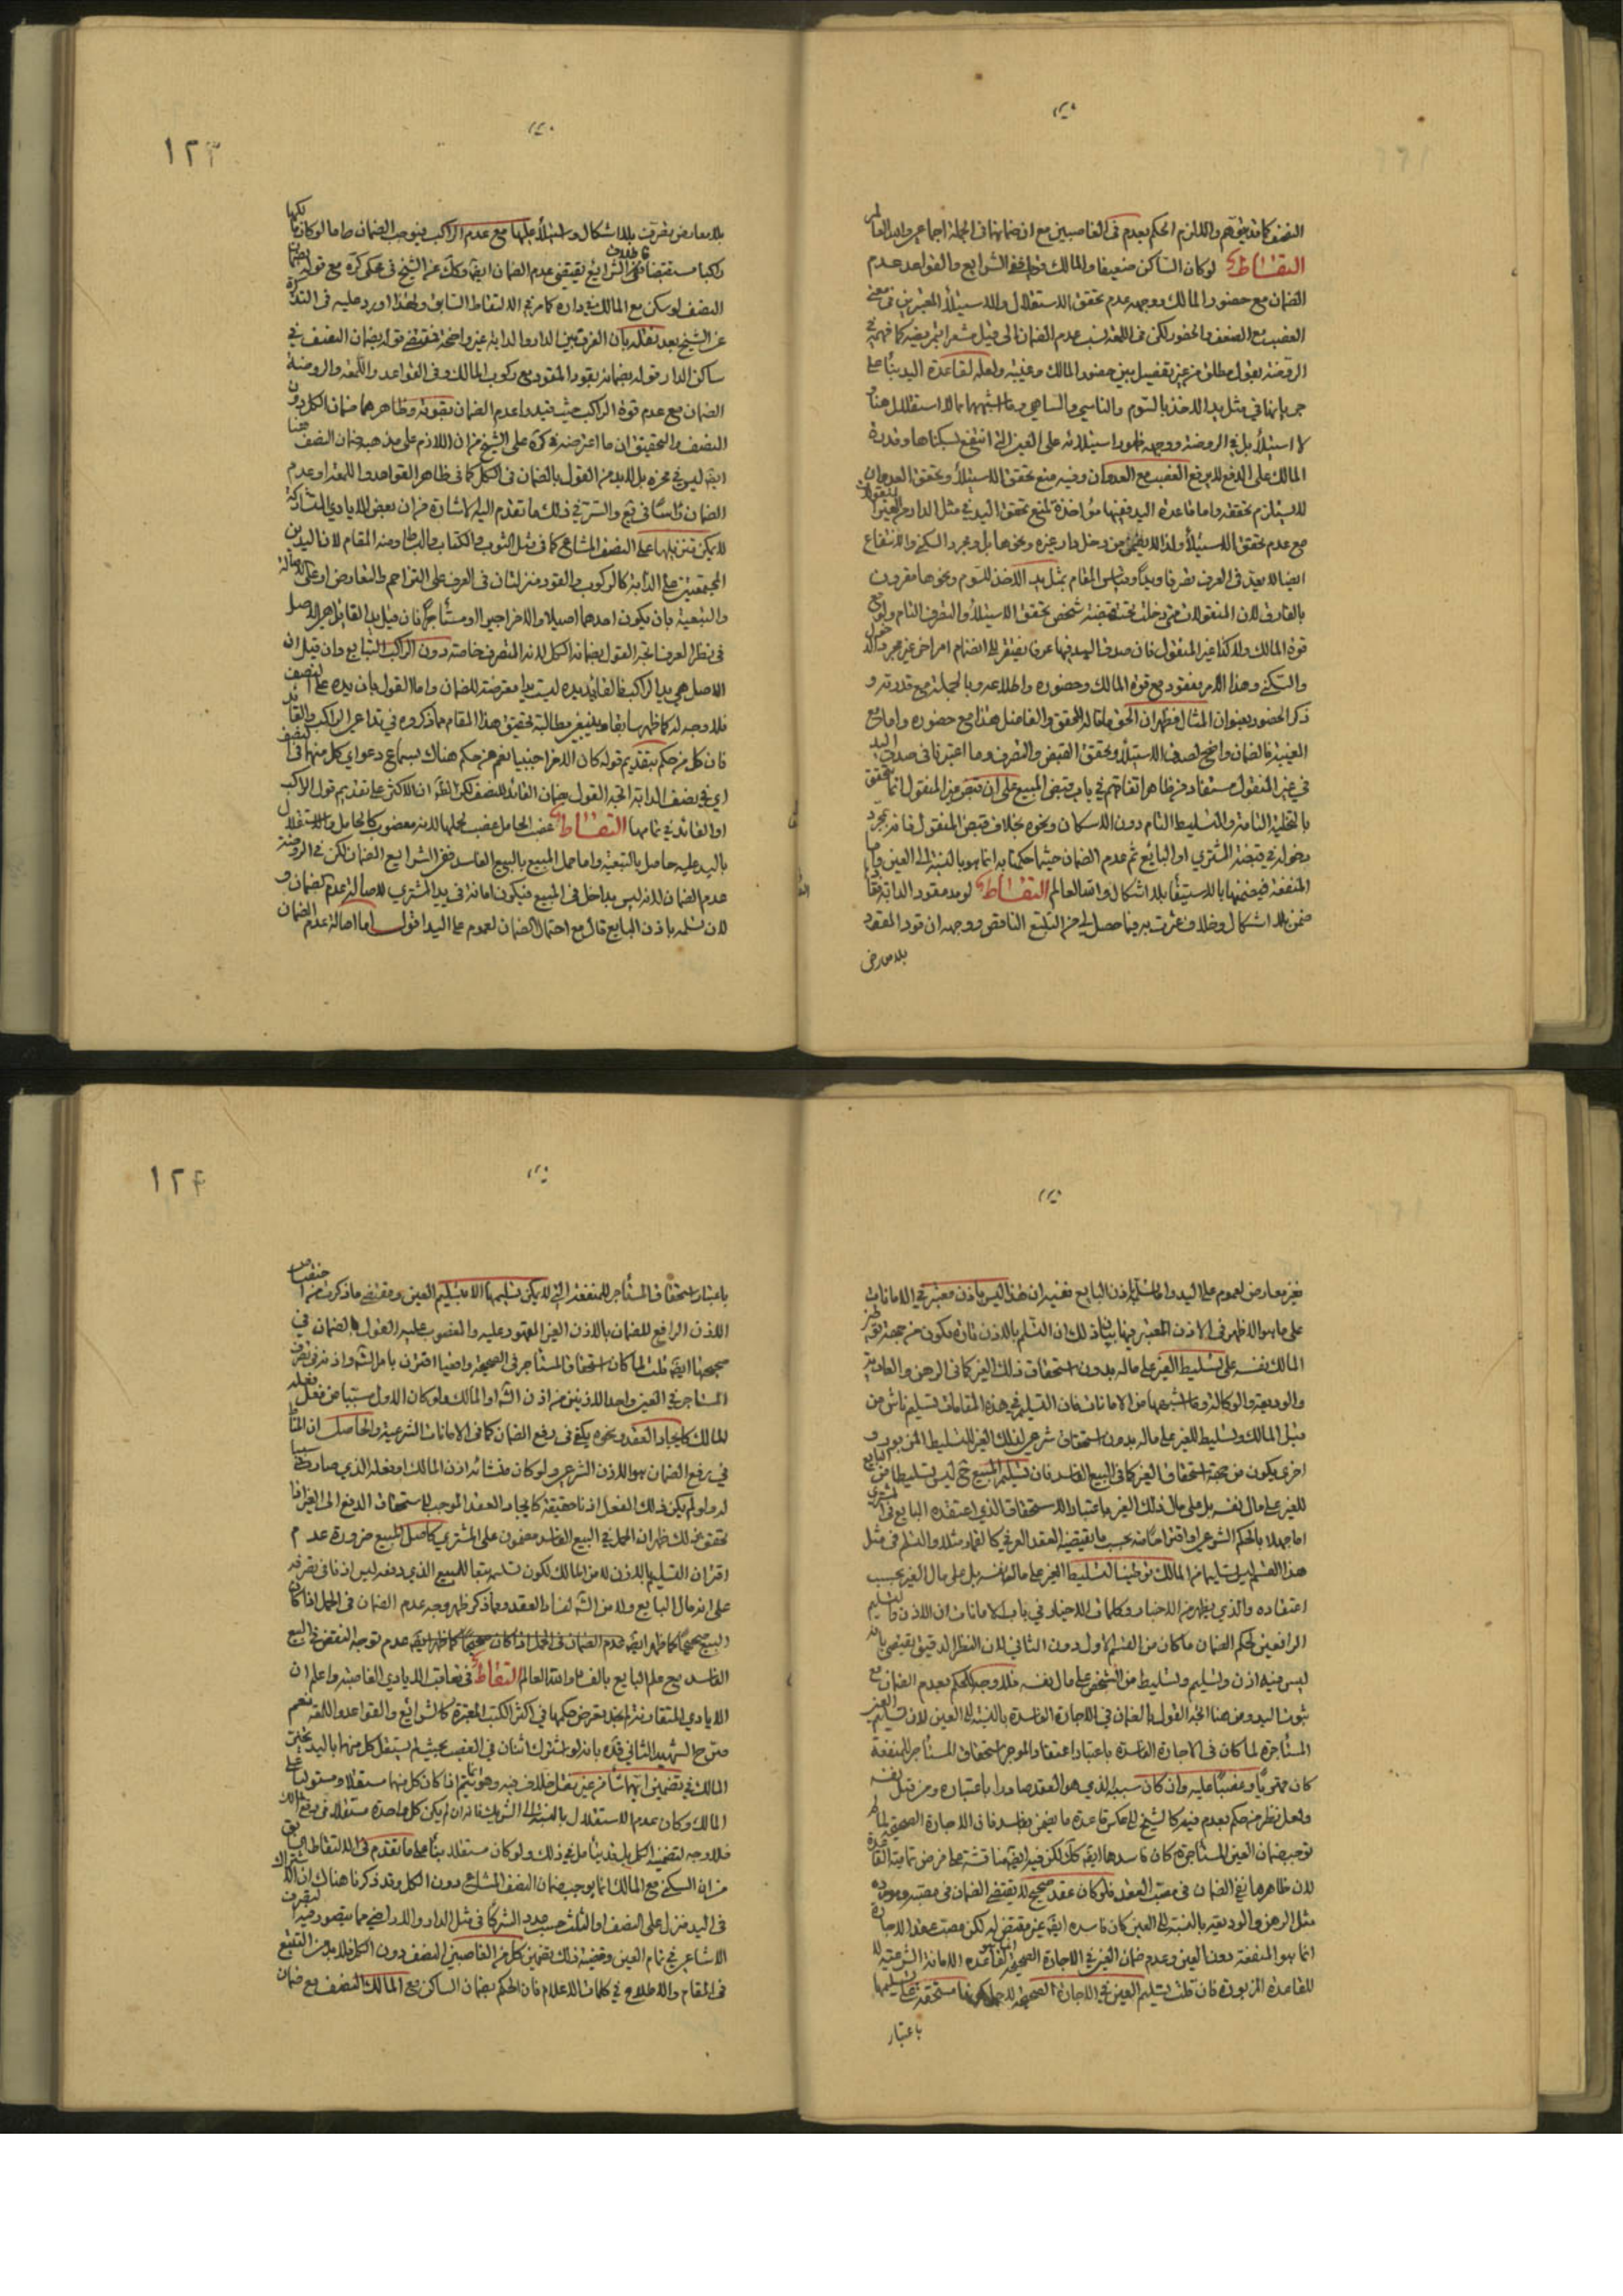 النصف كما قد يتوهم والا لزم الحكم بعدم في الغاصبين مع ان ضمانهما في الجملة اجماعي والله العالم
التقاط لو كان الساكن ضعيفا والمالك قويا ففي الشرايع والقواعد عدم
الضمان مع حضور المالك ووجهه عدم تحقق الاستقلال والاستيلاء المعتبرين في معنى
الغصب مع الضعف والحضور لكن في اللمعة نسب عدم الضمان الى قيل مشعرا بتمريضه كما فهمه في
الروضة بقول مطلق من غير تفصيل بين حضور المالك وغيبته ولعله لقاعدة اليد بناء على
جريانها في مثل يد الاخذ بالسوم والناسي والساهي وما اشبههما مما لا استقلال هنا و
لا استيلاء بل في الروضة ووجهه ظهور استيلائه على العين التي انتفع بسكناها وقدرة
المالك على الدفع لا يرفع الغصب مع العدوان وفيه منع تحقق الاستيلاء وتحقق العدوان
لا يستلزم تحققه واما قاعدة اليد ففيها مؤاخذة لمنع تحقق اليد في مثل الدار من غير المنقولات
مع عدم تحقق الاستيلاء ولذا لا يضمن من دخل دار غيره ونحوها بل ومجرد السكنى والانتفاع
ايضا لا يعد في العرف تصرفا ويدا وقياس المقام بمثل يد الاخذ للسوم ونحوها مقرون
بالفارق لان المنقولات متى دخلت تحت قبضة شخص تحقق الاستيلاء والتصرف التام ولو مع
قوة المالك ولا كذا غير المنقول فان صدق اليد فيها عرفا يفتقر الى انضمام امر اخر غير مجرد الدخول
والسكنى وهذا الامر مفقود مع قوة المالك وحضوره واطلاعه وبالجملة مع قدرته و
ذكر الحضور بعنوان المثال فظهر ان الحق ما قاله المحقق والفاضل هذا مع حضوره واما مع
الغيبة فالضمان واضح لصدق الاستيلاء وتحقق القبض والتصرف وما اعتبرنا في صدق اليد
في غير المنقول مستفاد من ظاهر اتفاقهم في باب قبض المبيع على ان قبض غير المنقول انما يتحقق
بالتخلية التامة والتسليط التام دون الاسكان ونحوه بخلاف قبض المنقول فانه بمجرد
دخوله في قبضة المشتري او البايع ثم عدم الضمان حيثما حكمنا به انما هو بالنسبة الى العين واما
المنفعة فيضمنها بالاستيفاء بلا اشكال والله العالم التقاط لو مد مقود الدابة فقاد
ضمن بلا اشكال وخلاف عثرت به فيما حصل لي من التتبع الناقص ووجهه ان قود المقود
بلا معارض
١٢٣
بلا معارض تصرف بلا اشكال واستيلاء عليها مع عدم الراكب فيوجب الضمان واما لو كان مالكها
راكبا مستقبضا فظاهر اطلاق الشرايع يقتضي عدم الضمان ايضا وكذا عن الشيخ في محكي كره مع قوله بضمان
النصف لو سكن مع المالك في داره كما مر في الالتقاط السابق ولهذا اورد عليه في التذكرة
عن الشيخ بعد نقله بان الفرق بين الدار والدابة غير واضحة فمقتضى قوله بضمان النصف في
ساكن الدار قوله بضمانه بقود المقود مع ركوب المالك وفي القواعد واللمعة والروضة
الضمان مع عدم قوة الراكب حيث قيدوا عدم الضمان بقوته وظاهرهما ضمان الكل دون
النصف والتحقيق ان ما اعترضه في كره على الشيخ من ان اللازم على مذهبه ضمان النصف هنا
ايضا ليس في محزه بل لا بد من القول بالضمان في الكل كما في ظاهر القواعد واللمعة او عدم
الضمان راسا كما في يع والسر في ذلك ما تقدم اليه الاشارة من ان بعض الايادي المشتركة
لا يمكن تنزيلها على النصف المشاعي كما في مثل الثوب والكتاب والبساط ومنه المقام لان اليدين
المجتمعتين على الدابة كالركوب والقود منزلتان في العرف على التزاحم والتعارض او على الاصالة
والتبعية بان يكون احدهما اصيلا والاخر اجيرا او مستأجرا فان قيل يد القائد هي الاصل
في نظر العرف اتجه القول بضمانه الكل لانه المتصرف خاصة دون الراكب التابع وان قيل ان
الاصل هي يد الراكب فالقائد يده ليست يدا مقتضية للضمان واما القول بان يده على النصف
فلا وجه له كما ظهر سابقا وينبغي مطالبة تحقيق هذا المقام مما ذكروه في تداعي الراكب والقائد
فان كل من حكم بتقديم قوله كان الاخر اجنبيا نعم من حكم هناك بسماع دعوى كل منهما في النصف
اي في نصف الدابة اتجه القول بضمان القائد للنصف لكن الظاهر ان الاكثر على تقديم قول الراكب
او القائد في تمامها التقاط غصب الحامل غصب لحملها لانه مغصوب كالحامل والاستقلال
باليد عليه حاصل بالتبعية واما حمل المبيع بالبيع الفاسد ففي الشرايع الضمان لكن في الروضة
عدم الضمان لانه ليس بداخل في المبيع فيكون امانة في يد المشتري لاصالة عدم الضمان و
لان تسلمه باذن البايع قال مع احتمال الضمان لعموم على اليد اقول اما اصالة عدم الضمان
فغير معارض لعموم على اليد واما تسلمه باذن البايع ففيه ان هذا ليس باذن معتبر في الامانات
على ما هو الاظهر في الاذن المعتبر فيها بيان ذلك ان التسلم بالاذن تارة يكون من جهة ترخيص
المالك نفسه على تسليط الغير على ماله بدون استحقاق ذلك الغير كما في الرهن والعارية
والوديعة والوكالة وما اشبهها من الامانات فان التسليم في هذه المقامات تسليم ناش من
قبل المالك وتسليط للغير على ماله بدون استحقاق شرعي لذلك الغير للتسليط المزبور و
اخرى يكون من جهة استحقاق الغير كما في البيع الفاسد فان تسليم المبيع ح ليس تسليطا من البايع
للغير على مال نفسه بل على مال ذلك الغير باعتبار الاستحقاق الذي اعتقده البايع في المشتري
اما جهلا بالحكم الشرعي او اقداما منه بحسب ما يقتضيه العقد العرفي كالقمار مثلا والتسلم في مثل
هذا القسم ليس تسليما من المالك وتوطينا لتسليط الغير على ماله بنفسه بل على مال الغير بحسب
اعتقاده والذي يظهر من الاخبار وكلمات الاخيار في باب الامانات ان الاذن والتسليم
الرافعين لحكم الضمان ما كان من القسم الاول دون الثاني لان النظر الدقيق يقتضي بانه
ليس فيه اذن وتسليم وتسليط من الشخص على مال نفسه فلا وجه للحكم بعدم الضمان مع
ثبوت اليد ومن هنا اتجه القول بالضمان في الاجارة الفاسدة بالنسبة الى العين لان تسليم العين
المستأجرة لما كان في الاجارة الفاسدة باعتبار اعتقاد الموجر استحقاق المستأجر للمنفعة
كان قهريا وغصبا عليه وان كان سببه الذي هو العقد صادرا باختياره ومن قبل نفسه
ولعل نظر من حكم بعدم فيه كالشيخ الى عكس قاعدة ما يضمن بفاسد فان الاجارة الصحيحة لما لم
توجب ضمان العين المستأجرة كان فاسدها ايضا كك لكن فيه ايضا مناقشة على فرض تمامية القاعدة
لان ظاهرها نفي الضمان في مصب العقد فلو كان عقد صحيح لا يقتضي الضمان في مصبه ومورده
مثل الرهن والوديعة بالنسبة الى العين كان فاسده ايضا غير مقتض له لكن مصب عقد الاجارة
انما هو المنفعة دون العين وعدم ضمان العين في الاجارة الصحيحة انما هو لقاعدة الامانة الشرعية لا
للقاعدة المزبورة فان قلت تسليم العين في الاجارة الصحيحة مستحقة على تسليمها
باعتبار
١٢٤
باعتبار استحقاق المستأجر للمنفعة التي لا يمكن تسليمها الا بتسليم العين ومقتضى ما ذكرت من اختصاص
الاذن الرافع للضمان بالاذن الغير المعقود عليه والمغصوب عليه القول بالضمان في
صحيحها ايضا قلت لما كان استحقاق المستأجر في الصحيحة واقعيا اقترن بامر الشارع واذنه في تصرف
المستأجر في العين واحد الاذنين من اذن الشارع او المالك ولو كان الاول مسببا عن فعل
المالك كايجاد العقد ونحوه يكفي في رفع الضمان كما في الامانات الشرعية والحاصل ان المناط
في رفع الضمان هو الاذن الشرعي ولو كان منشائه اذن المالك او فعله الذي صار سببا
له ولو لم يكن ذلك الفعل اذنا حقيقة كايجاد العقد الموجب لاستحقاق الدفع الى الغير اذا
تحقق ذلك ظهر ان الحمل في البيع الفاسد مضمون على المشتري كاصل المبيع ضرورة عدم
اقتران التسليم بالاذن لا من المالك لكون تسليمه تبعا للمبيع الذي دفعه ليس اذنا في تصرفه
على انه مال البايع ولا من الشارع لفساد العقد ومما ذكر ظهر وجه عدم الضمان في الحمل اذا كان
البيع صحيحا كما ظهر ايضا عدم توجه النقض بالبيع
الفاسد مع علم البايع بالفساد والله العالم التقاط في تعاقب الايادي الغاصبة واعلم ان
الايادي المتقارنة لم نجد تعرض حكمها في اكثر الكتب المعتبرة كالشرايع والقواعد واللمعة نعم
صرح الشهيد الثاني قده بانه لو اشترك اثنان في الغصب بحيث لم يستقل كل منهما باليد تخير
المالك في تضمين ايهما شاء من غير نقل خلاف فيه وهو انما يتم اذا كان كل منهما مستقلا ومستوليا على
فلا وجه لتضمينه الكل
من ان السكنى مع المالك انما يوجب ضمان النصف المشاعي دون الكل وقد ذكرنا هناك ان الاشتراك
في اليد منزل على النصف او الثلث حسب عدد الشركاء في مثل الدار والاراضي مما يتصور فيه التصرف
الاشاعي في تمام العين وقضية ذلك تضمين كل من الغاصبين النصف دون الكل فلا بد من التتبع
في المقام والاطلاع في كلمات الاعلام فان الحكم بضمان الساكن مع المالك النصف مع ضمان